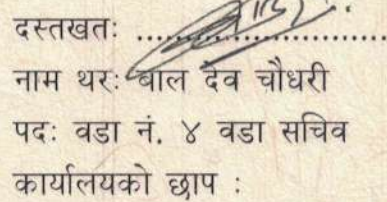 दस्तखतः ..............................
नाम थरः बाल देव चौधरी
पदः वडा नं. ४ वडा सचिव
कार्यालयको छाप :